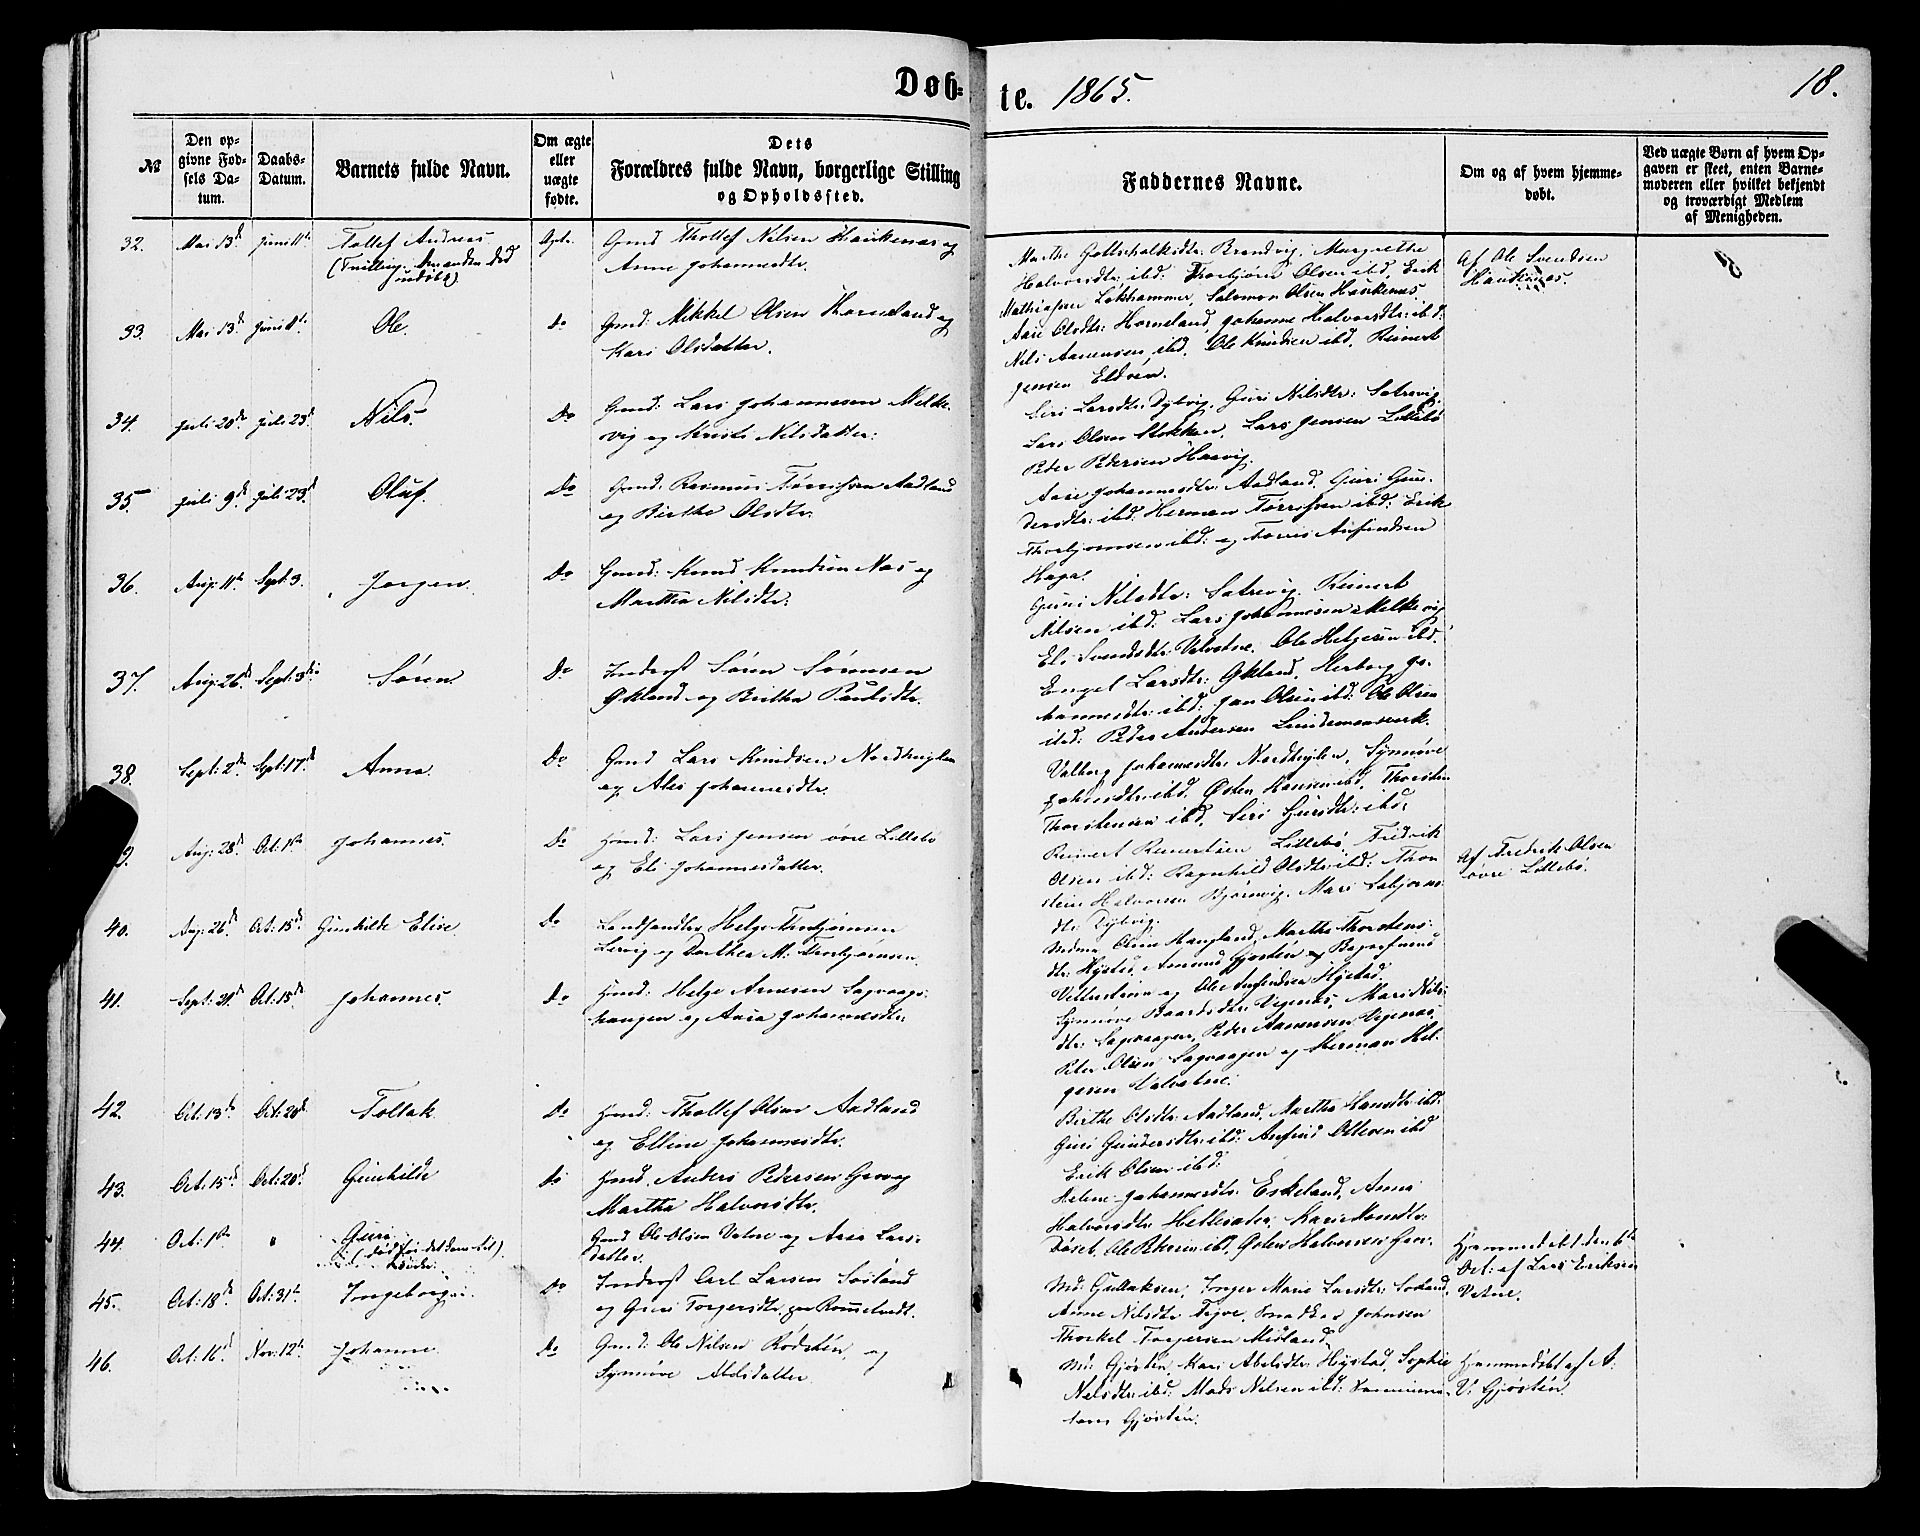 Døb=
te. 1865.
18.
№
Den op-
givne Fød-
sels Da-
tum.
Daabs-
Datum.
Barnets fulde Navn.
Om ægte
eller
uægte
fødte.
Dets
Forældres fulde Navn, borgerlige Stilling
og Opholdssted.
Faddernes Navne.
Om og af hvem hjemme-
døbt.
Ved uægte Børn af hvem Op-
gaven er skeet, enten Barne-
moderen eller hvilket bekjendt
og troværdigt Medlem
af Menigheden.
32. Mai 13d Juni 11te Tollef Andreas Ægte. Gmd Thollef Nilsen Haukenæs og
Anne Johannesdtr.
Marthe Gottschalksdtr. Brandvig. Margrethe
Halvorsdtr. ibd: Thorbjørn Olsen ibd, Erik
Mathiassen Løkhammer, Salomon Olsen Haukenæs
Af Ole Svendsen
Haukenæs.
33. Mai 13d Juni Ole. Do Gmd: Mikkel Olsen Horneland og
Kari Olsdatter.
Aase Olsdtr: Horneland, Johanne Halvorsdtr: ibd.
Nils Aamensen ibd. Ole Knudsen ibd. Reinert
Jensen Eldøen.
34. Juli 20de Juli 23d Nils. Do Gmd: Lars Johannessen Melke-
vig og Kirsti Nilsdatter:
Siri Larsdtr: Dybvig. Guri Nilsdtr: Satrevig
Lars Olsen Stokken, Lars Jensen Lillebø
Peder Pedersen Haavig.
35. Juli 9d Juli 23d Oluf. Do Gmd: Rasmus Tørrissen Aadland
og Birthe Olsdtr.
Aase Johannesdtr: Aadland. Guri Gun-
dersdtr: ibd. Herman Tørrissen ibd: Erik
Thorbjørnsen ibd: og Tørris Anfindsen
Haga.
36. Aug: 11te Sept: 3. Jørgen. Do Gmd: Knud Knudsen Næs og
Martha Nilsdtr:
Guri Nilsdtr: Satrevig. Reinert
Nilsen ibd: Lars Johannesen Melkevig
Eli Svendsdtr: Valvatne. Ole Helgesen ibd.
37. Aug: 26de Sept: 3die Søren. Do Inderst Søren Sørensen
Økland og Britha Paulsdtr.
Engel Larsdtr: Økland, Herborg Jo-
hannesdtr: ibd: Jan Olsen ibd: Ole Olsen
ibd: Peder Andersen
38. Sept: 2d Sept: 17de Anna. Do Gmd Lars Knudsen Nordhuglen
og Ales Johannesdtr.
Valborg Johannesdtr. Nordhuglen, Synnøve
Johnsdtr: ibd. Østen Hansen ibd. Thorsten
Thorstensen ibd. Siri Sjursdtr: ibd:
Aug: 28de Oct: 1ste Johannes. Do Hmd: Lars Jensen øvre Lillebø
og Eli Johannesdatter.
Reinert Reinertsen Lillebø, Fredrik
Olsen ibd: Ragnhild Olsdtr: ibd: Thor-
stein Halvorsen Bjørnevig. Mari
dtr Dybvig.
Af Fredrik Olsen
øvre Lillebø.
40. Aug: 26de Oct: 15de Gunhilde Elise. do Landhandler Helge Thorbjørnsen
Lervig og Dorthea M: Thorbjørnsen.
Mdme Olsen Haugland. Martha Thorstens-
dtr: Hystad. Amund Gjøsten og
og Ole Anfindsen Hystad.
41. Sept: 21de Oct: 15de Johannes. do Hmd: Helge Arnesen Sagvaag-
haugen og Anna Johannesdtr.
Synnøve Baardsdtr: Vigenæs, Mari Nils-
dtr: Sagvaagen, Peder Aamensen Vigenæs,
Peter Olsen Sagvaagen og Herman Hel-
gesen Valvatne.
42. Oct: 13de Oct: 20de Tollak Do Hmd: Thollef Olsen Aadland
og Ellene Johannesdtr.
Birthe Olsdtr: Aadland, Martha Hansdtr ibd:
Guri Gundersdtr: ibd: Anfind Ottesen ibd
Erik Olsen ibd:
43. Oct: 15de Oct: 20de Gunhilde Do Hmd. Anders Pedersen Grov og
Martha Halvorsdtr.
Helene Johannesdtr: Eskeland, Anna
Halvorsdtr Hellesater. Kari
44. Oct: 1ste " Guri Gmd Ole Olsen Vatne og Aase Lars-
datter.
Hjemmedøbt den 6te
Oct: af Lars Eriksen
Vatne.
45. Oct: 18de Oct: 31te Ingeborg. Do Inderst Carl Larsen Søeland
og Guri Torgersdtr: paa Rommetvedt.
Inger Marie Larsdtr: Søeland,
Anne Nilsdtr Johnsen
Thorkel Torgersen Midland
46. Oct: 16de Nov: 12te Johanne Do Gmd: Ole Nilsen Rødstén, og
Synnøve Abelsdatter
Md: Gjøstén. Kari Abelsdtr: Hystad, Sophie
Nilsdtr: ibd: Mads Nilsen ibd:
Gjøstén.
Hjemmedøbt af A:
V: Gjøstén